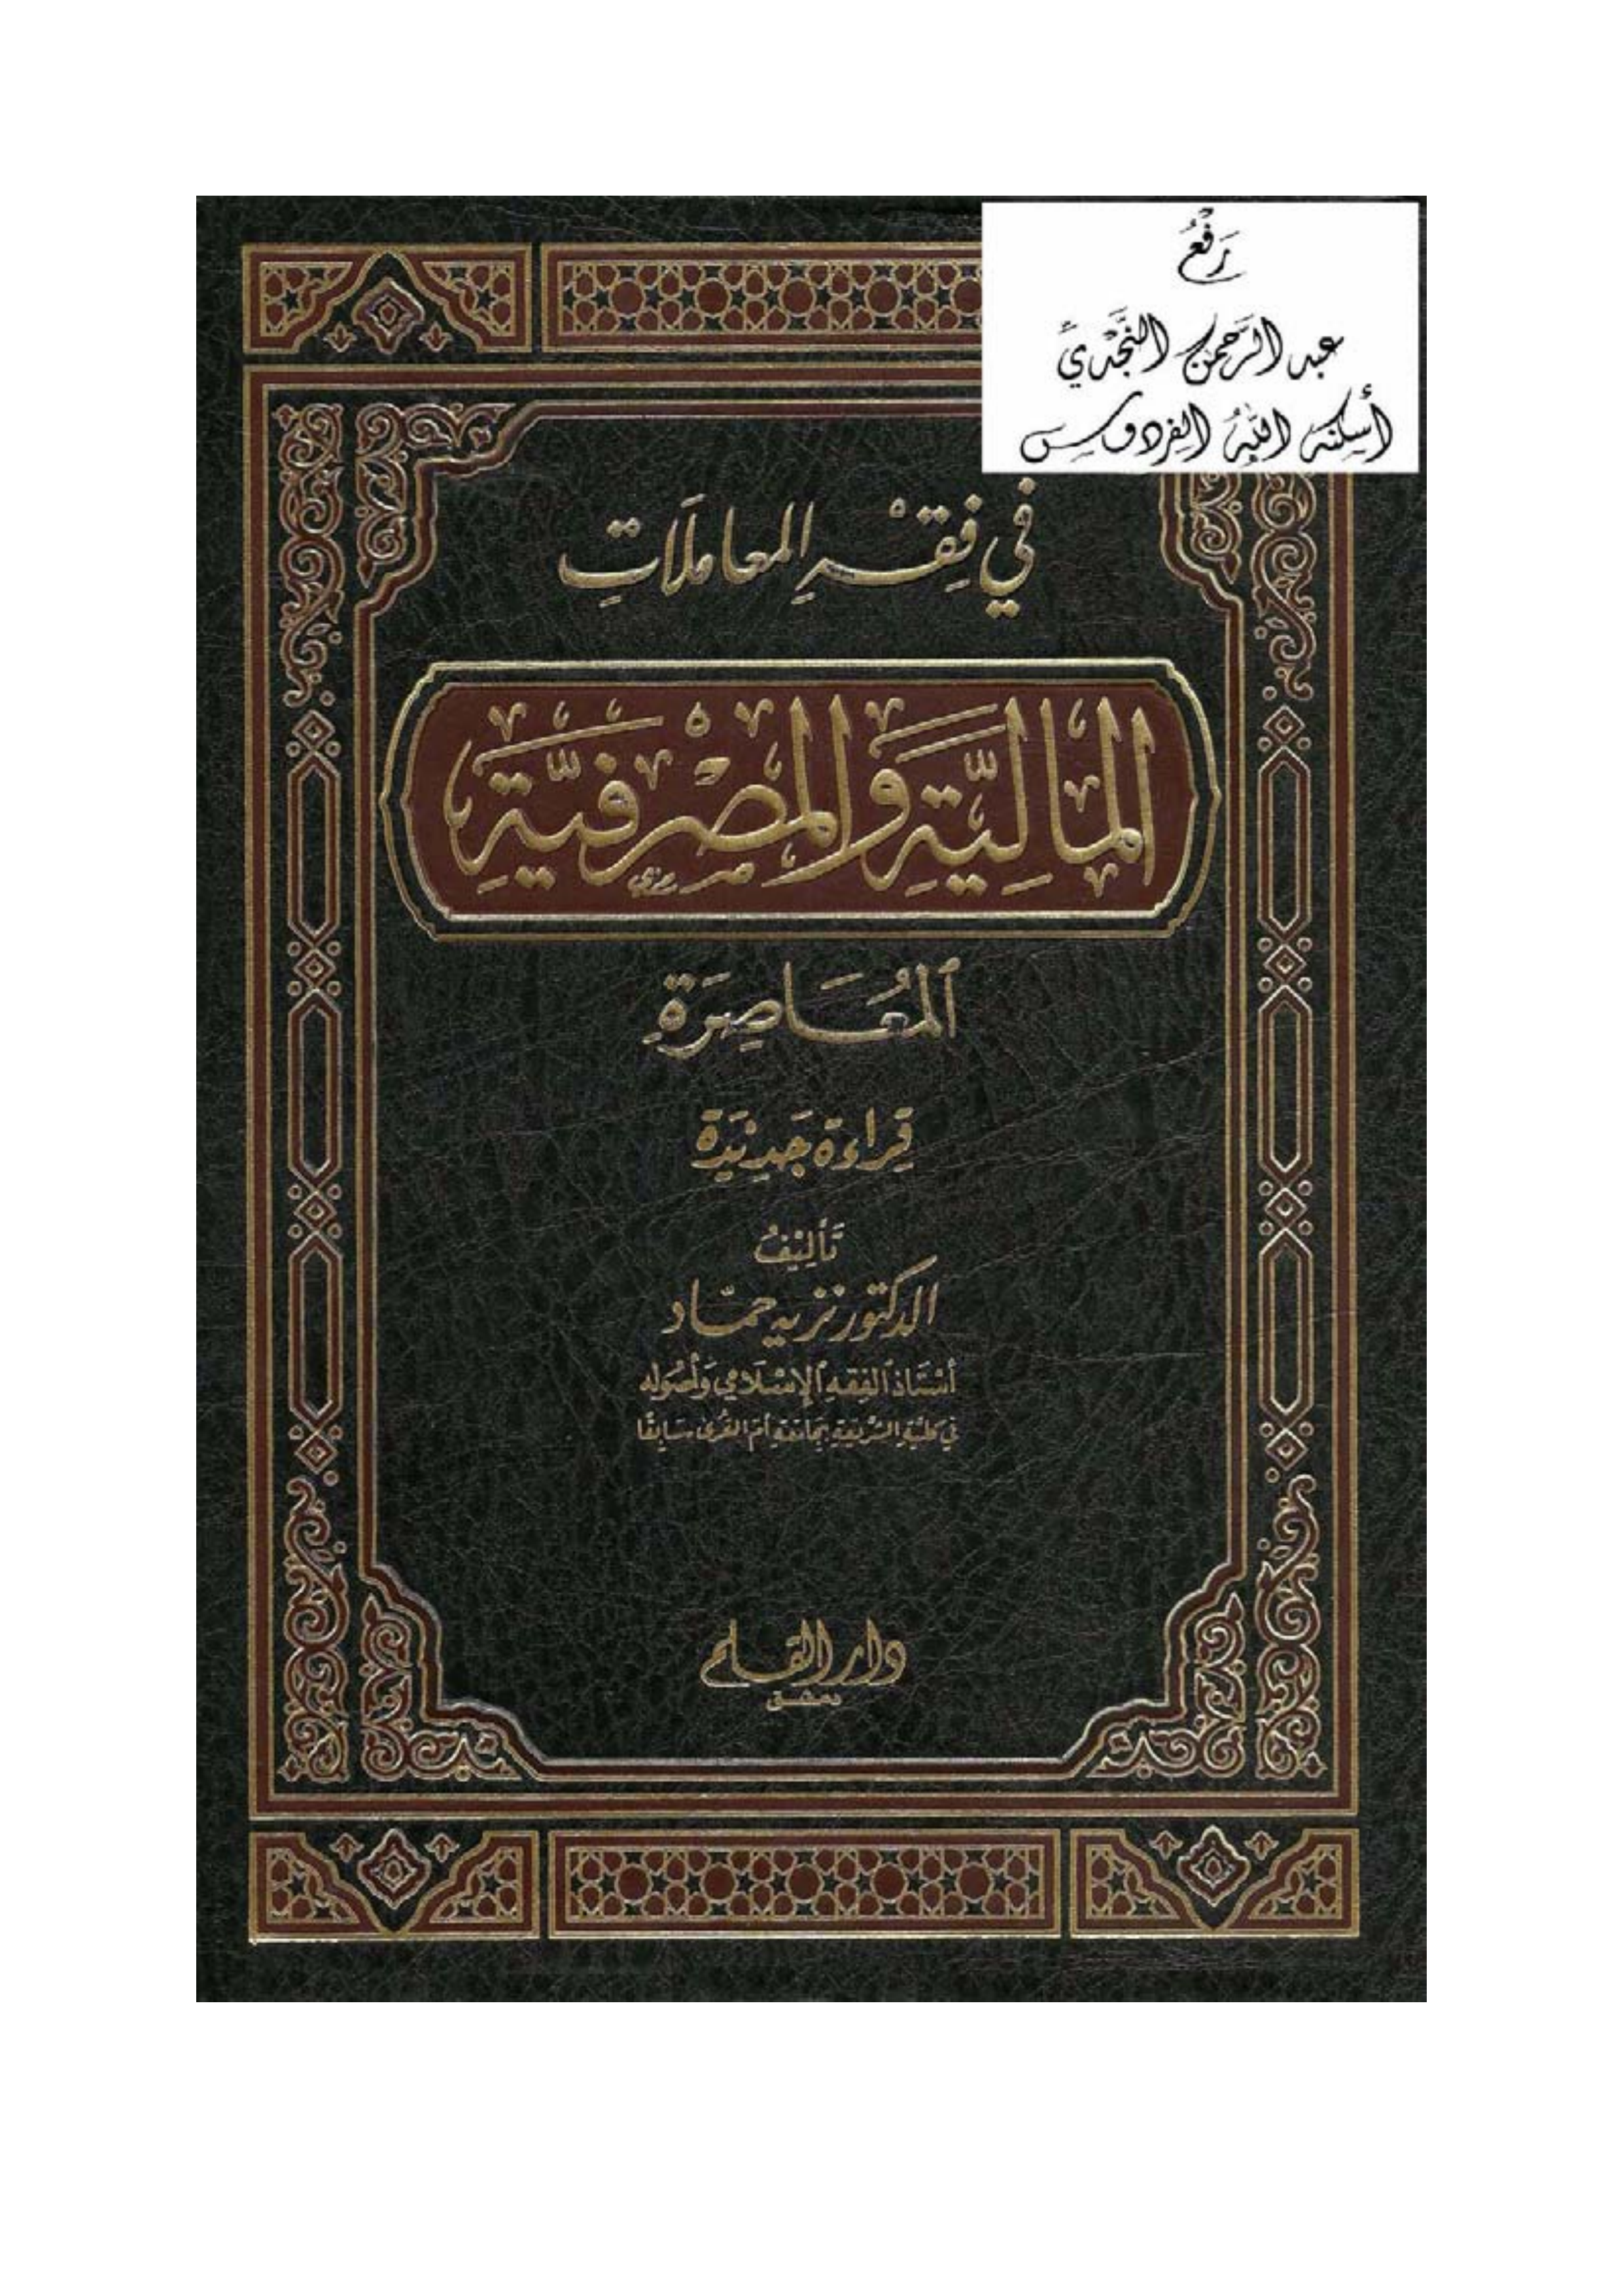 رَفْعُ
عبد الرَّحمن النَّجْدِيَّ
أسكنه اللهُ الفردوس
في فِقْهِ المعاملَاتِ
المَالِيَّةِ وَالمَصْرِفِيَّةِ
المُعَاصِرَةِ
قِرَاءَة جَدِيْدَة
تَأْلِيْفُ
الدكتور نزيه حمّاد
أسْتَاذ الفِقه الإسْلَامي وَأصُوله
في كليَّةِ الشَّريعَةِ بجَامعَةِ أمّ القُرى سَابقًا
دار القلم
دمشق